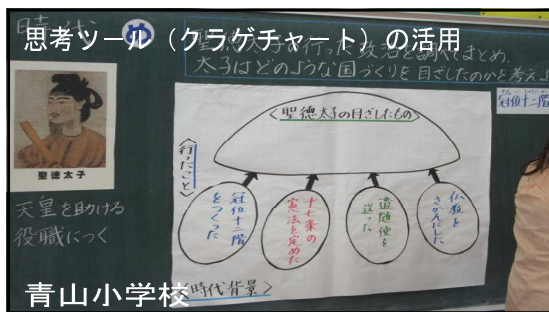 思考ツール（クラゲチャート）の活用
め
聖徳太子の行った政治を調べてまとめ、
太子はどのような国づくりを目ざしたのかを考えよ
冠位十二階
聖徳太子
天皇を助ける
役職につく
〈聖徳太子の目ざしたもの〉
〈行ったこと〉
冠位十二階
をつくった
十七条の
憲法を定めた
遣隋使を
送った
仏教を
さかんにした
時代背景〉
青山小学校